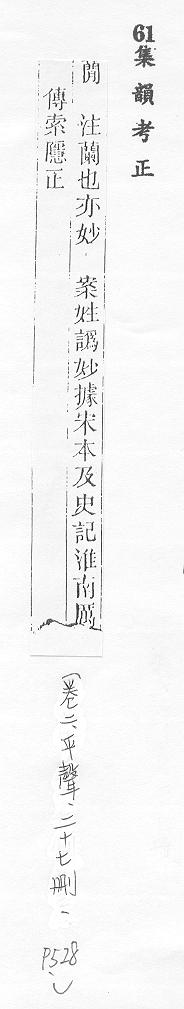 61集韻考正
閒 注蘭也亦妙 案姓譌妙據宋本及史記淮南厲
傳索隱正
(卷二、平聲、二十七刪、P528、)